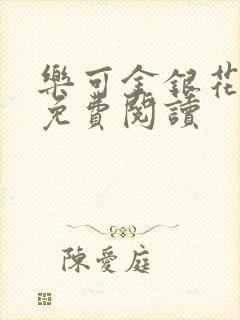 樂可金銀花
免費閱讀
陳愛庭